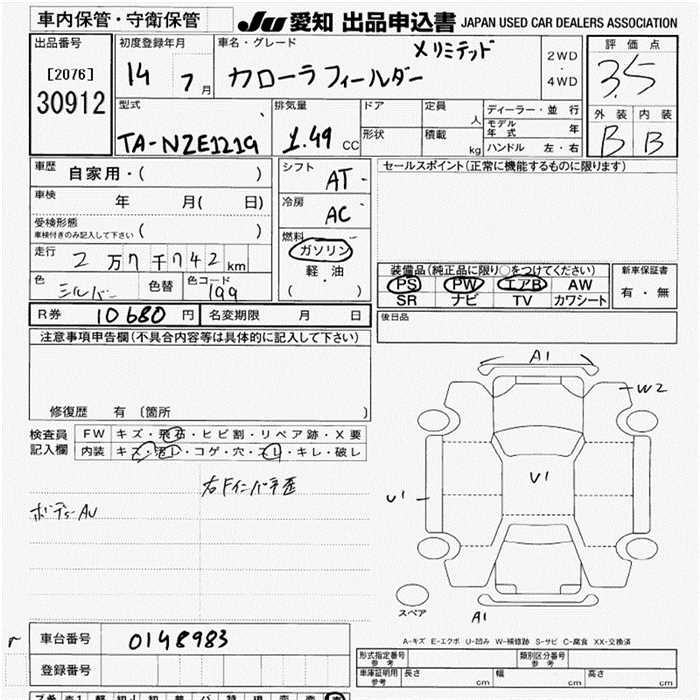 車内保管・守衛保管
JU 愛知 出品申込書 JAPAN USED CAR DEALERS ASSOCIATION
出品番号
[2076]
30912
初度登録年月
14 7月
車名・グレード
Xリミテッド
カローラフィールダー
2WD
・
4WD
評価点
3.5
外装 内装
B B
型式
TA-NZE121G
排気量
1.49 CC
ドア
形状
定員
人
積載
kg
ディーラー・並行
モデル年式 年
ハンドル 左・右
車歴 自家用・( )
車検 年 月( 日)
受検形態
車検付きのみ記入して下さい ( )
走行 2万7千742km
色 シルバー 色替 色コード 199
シフト AT
冷房 AC
燃料
ガソリン
軽・油
( )
セールスポイント(正常に機能するものに限ります)
装備品(純正品に限り○をつけてください)
PS PW エアB AW
SR ナビ TV カワシート
新車保証書
有・無
R券 10680円 名変期限 月 日
後日品
注意事項申告欄(不具合内容等は具体的に記入して下さい)
修復歴 有 (箇所 )
検査員
記入欄
FW キズ・飛石・ヒビ割・リペア跡・X要
内装 キズ・汚レ・コゲ・穴・スレ・キレ・破レ
右Fインパネ歪
ボディーAU
A1
W2
U1
U1
A1
スペア
A-キズ E-エクボ U-凹み W-補修跡 S-サビ C-腐食 XX-交換済
車台番号 0148983
登録番号
形式指定番号 参考
類別区分番号 参考
車庫証明用 参考 長さ cm 幅 cm 高さ cm